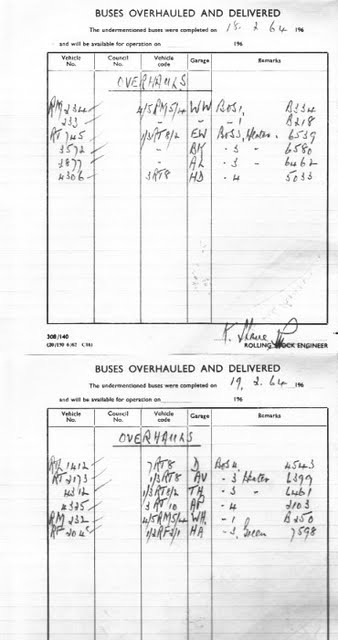 BUSES OVERHAULED AND DELIVERED
The undermentioned buses were completed on 18. 2. 64 196
and will be available for operation on 196
Vehicle No. Council No. Vehicle code Garage Remarks
OVERHAULS
RM 234 4/5RM5/4 WW BOS1, B334
233 " " -1, B218
RT 745 1/3RT8/2 EW BOS3, Heater. 6539
3572 " BK -3 " 6580
3877 " AL -3 " 6462
4306 3RT8 HD -4 5033
308/140 ROLLING STOCK ENGINEER
BUSES OVERHAULED AND DELIVERED
The undermentioned buses were completed on 19. 2. 64 196
and will be available for operation on 196
Vehicle No. Council No. Vehicle code Garage Remarks
OVERHAULS
1412 7RT8 D BOS4. 4543
RT 2173 1/3RT8 AV -3 Heater 6399
4312 1/3RT8/2 TH -3 " 6461
4325 3RT10 AP -4 2103
RM 232 4/5RM5/4 WH. -1 B250
RF 204 1/2RF2/1 HA -3, Green 7598